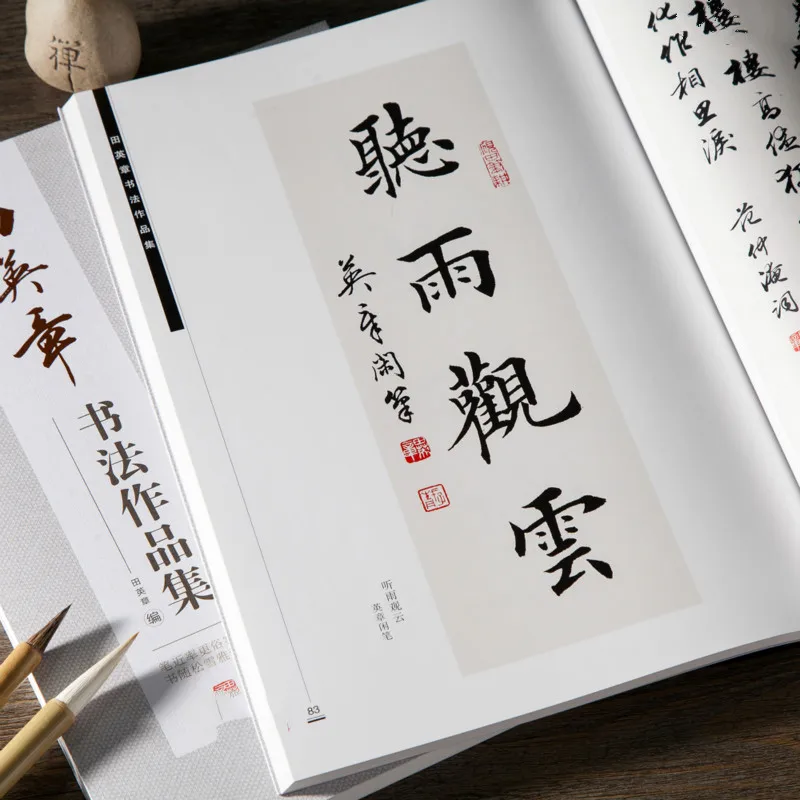 禪
田英章书法作品集
聽雨觀雲
英章閑筆
听雨观云
英章闲笔
83
樓高
化作相思淚
范仲淹詞
英章
书法作品集
田英章
编